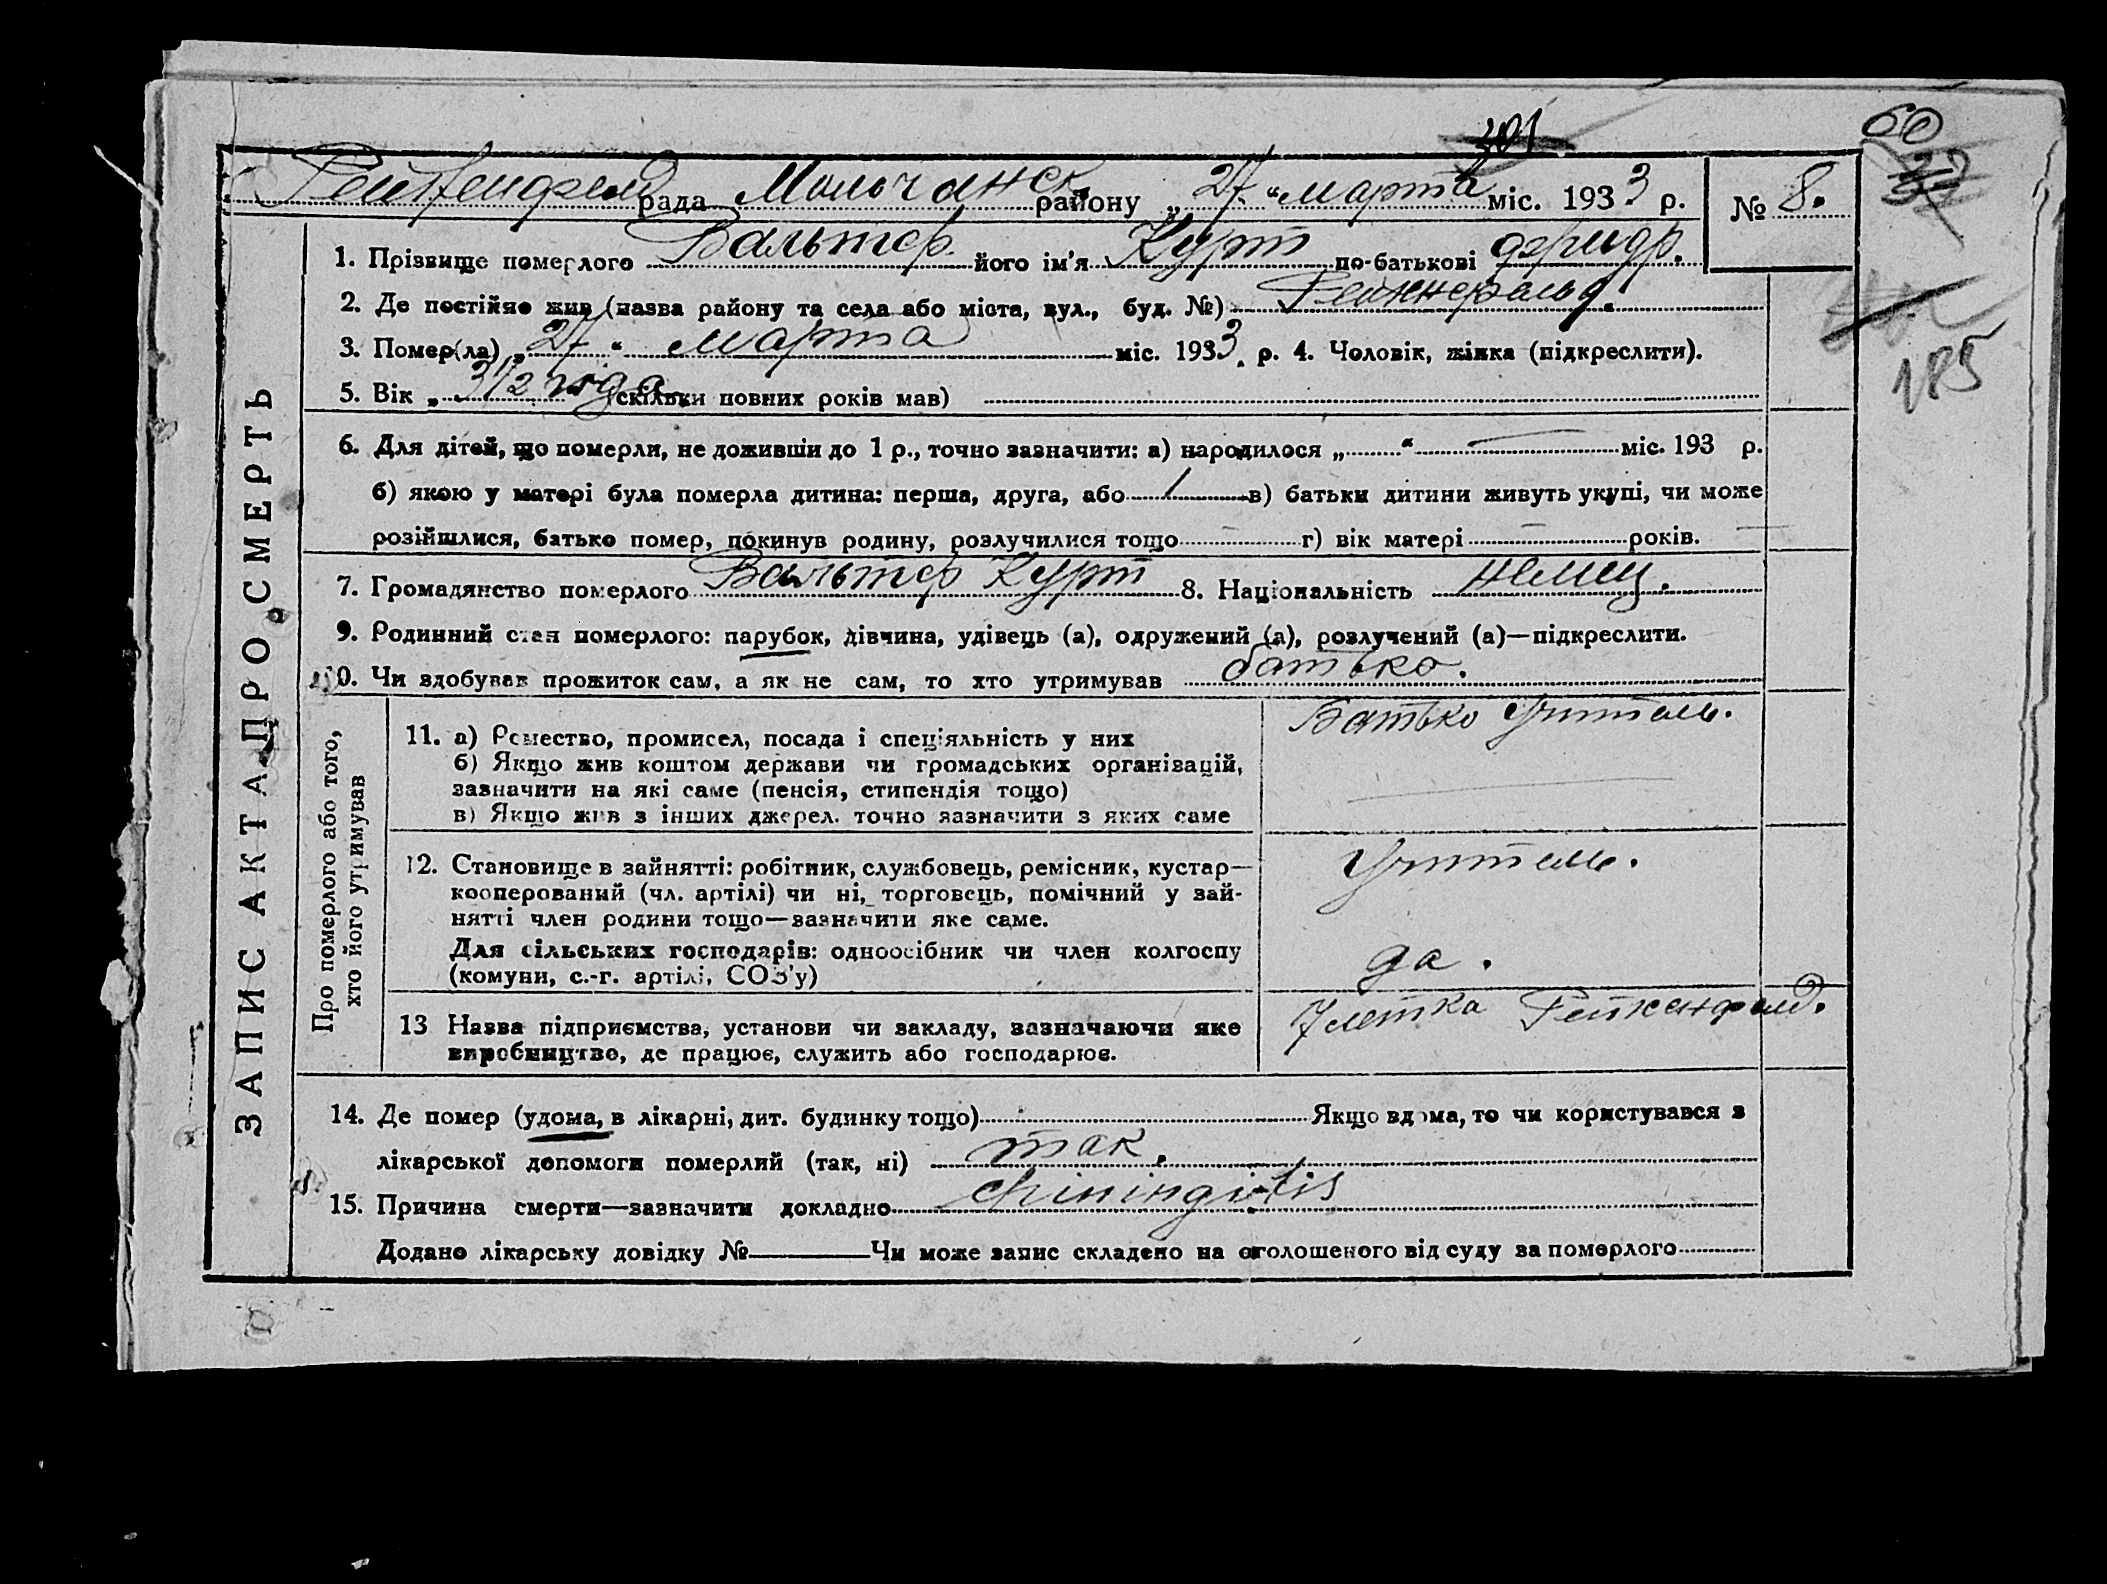 301
60
Рейкенфельд рада Молочанск району „27“ марта міс. 1933 р. № 8.
1. Прізвище померлого Вальтер його ім'я Курт по-батькові фридр.
2. Де постійно жив (назва району та села або міста, вул., буд. №)
3. Помер(ла) „27“ марта міс. 1933. р. 4. Чоловік, жінка (підкреслити).
185
5. Вік „3 1/2 года (скільки повних років мав)
6. Для дітей, що померли, не доживши до 1 р., точно зазначити: а) народилося „ “ міс. 193 р.
б) якою у матері була померла дитина: перша, друга, або в) батьки дитини живуть укупі, чи може
розійшлися, батько помер, покинув родину, розлучилися тощо г) вік матері років.
7. Громадянство померлого Вальтер Курт 8. Національність немец.
9. Родинний стан померлого: парубок, дівчина, удівець (а), одружений (а), розлучений (а)—підкреслити.
10. Чи здобував прожиток сам, а як не сам, то хто утримував батько.
ЗАПИС АКТА ПРО СМЕРТЬ
Про померлого або того,
хто його утримував
11. а) Ремество, промисел, посада і спеціяльність у них Батько учитель.
б) Якщо жив коштом держави чи громадських організацій,
зазначити на які саме (пенсія, стипендія тощо)
в) Якщо жив з інших джерел, точно зазначити з яких саме
12. Становище в зайнятті: робітник, службовець, ремісник, кустар— учитель.
кооперований (чл. артілі) чи ні, торговець, помічний у зай-
нятті член родини тощо—зазначити яке саме.
Для сільських господарів: одноосібник чи член колгоспу да.
(комуни, с.-г. артілі, СОЗ'у)
13 Назва підприємства, установи чи закладу, зазначаючи яке 7летка
виробництво, де працює, служить або господарює.
14. Де помер (удома, в лікарні, дит. будинку тощо) Якщо вдома, то чи користувався з
лікарської допомоги померлий (так, ні) так.
15. Причина смерти—зазначити докладно
Додано лікарську довідку № Чи може запис складено на оголошеного від суду за померлого